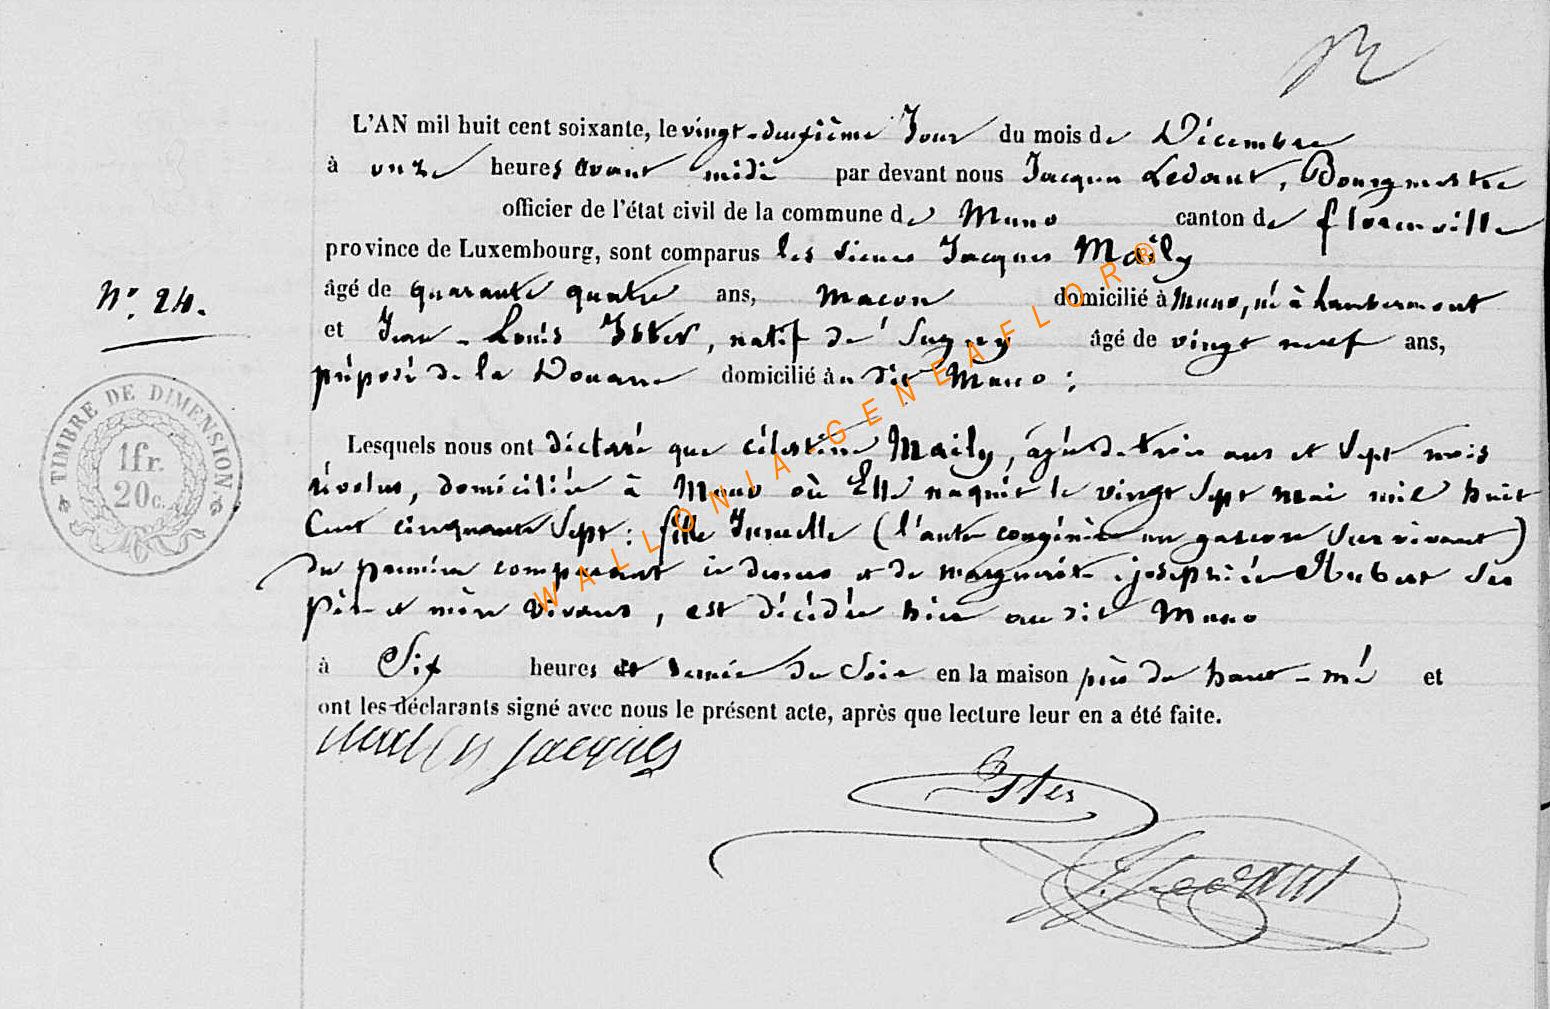 L'AN mil huit cent soixante, le vingt-deuxième Jour du mois de Décembre
à onze heures avant midi par devant nous Jacques Ledant, Bourgmestre
officier de l'état civil de la commune de Muno canton de florenville
province de Luxembourg, sont comparus les sieurs Jacques Maily
âgé de quarante quatre ans, Macon domicilié à Muno, né à Lambermont
N° 24.
et Jean-Louis Ister, natif de Sugny âgé de vingt neuf ans,
préposé de la Douane domicilié au dit Muno ;
TIMBRE DE DIMENSION
1 fr.
20 c.
Lesquels nous ont déclaré que Célestine Maily, âgée de trois ans et Sept mois
révolus, domiciliée à Muno où Elle naquit le vingt Sept mai mil huit
Cent cinquante Sept : fille Jumelle (l'autre congénère un garçon Survivant)
du premier comparant ci dessus et de marguerite josephine Hubert Ses
Père et mère Vivans, est décédée hier au dit Muno
à Six heures et demie du Soir en la maison près du haut-mé et
ont les déclarants signé avec nous le présent acte, après que lecture leur en a été faite.
Jacques
Ister
J. Ledant
WALLONIA GENEAFLOR®